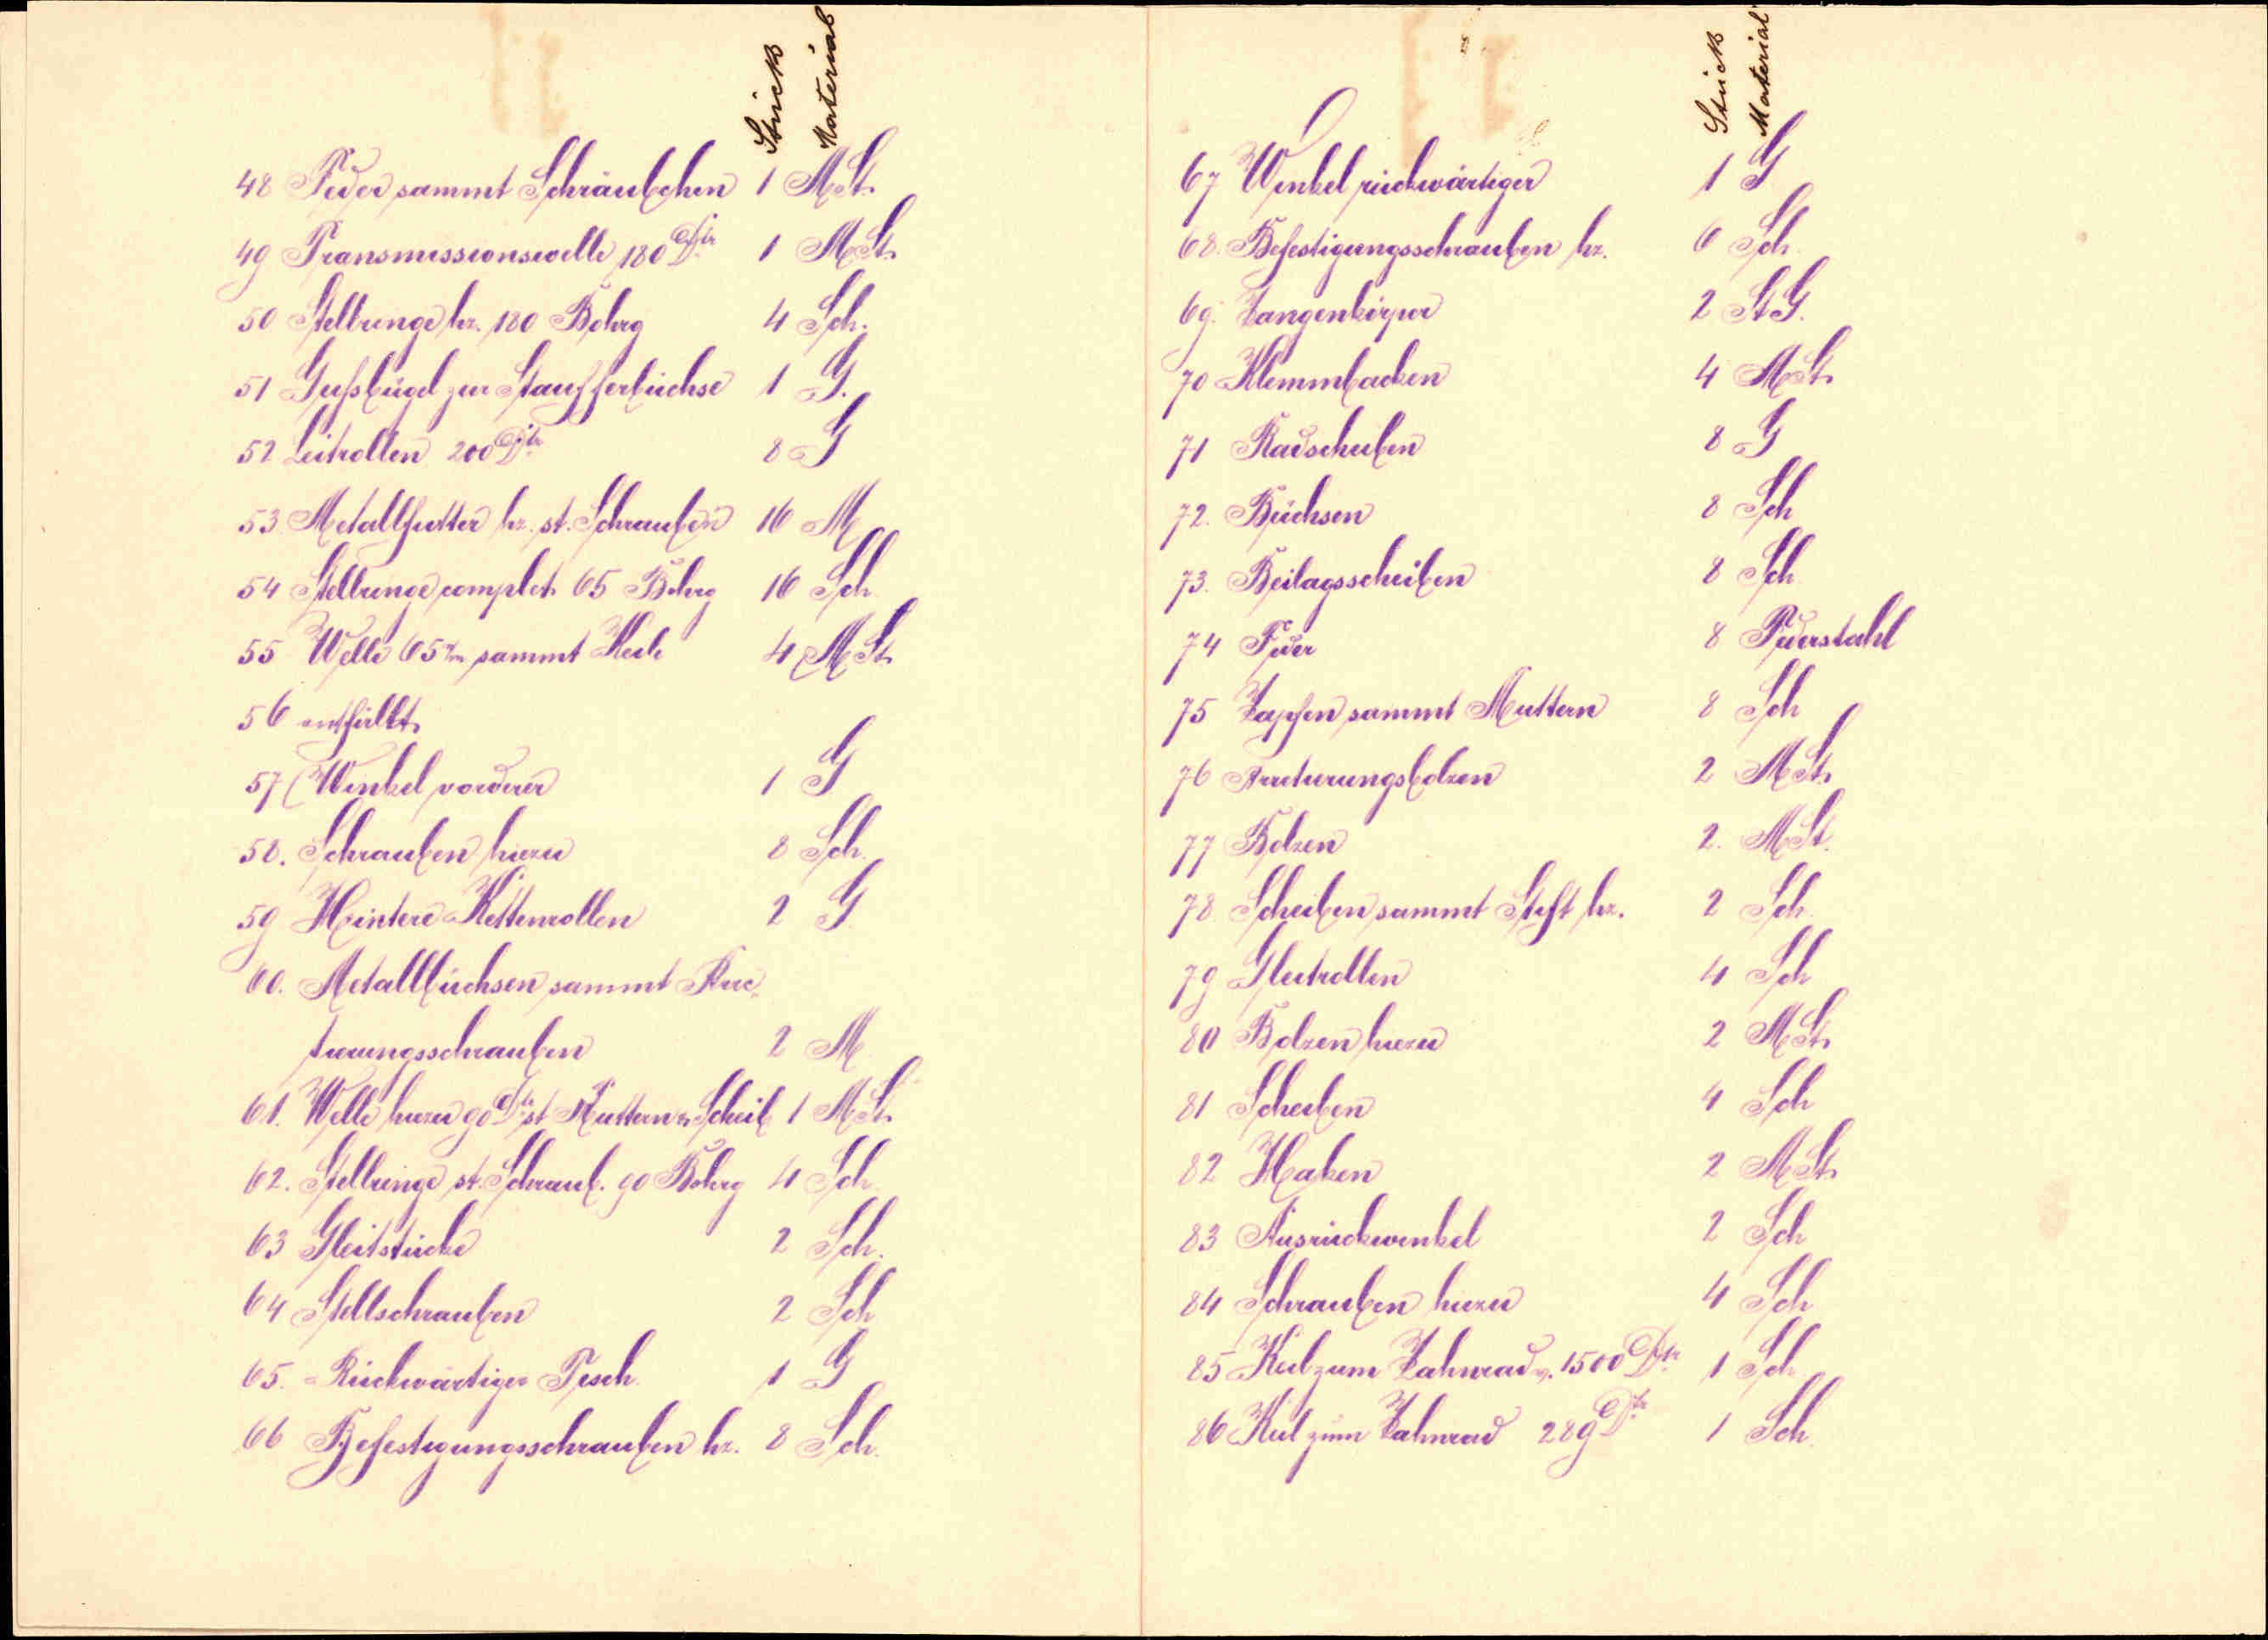 Stück Material
48 Feder sammt Schräubchen 1 M.St.
49 Transmissionswelle 180 Dtr 1 M.St.
50 Stellringe hz. 180 Bohrg 4 Sch.
51 Gußbügel zur Staufferbüchse 1 G.
52 Leitrollen 200 Dtr 8 G
53 Metallfutter hz. st. Schrauben 16 M
54 Stellringe complet 65 Bohrg 16 Sch.
55 Welle 65 m/m sammt Keile 4 M.St.
56 entfällt
57 Winkel vorderer 1 G
58. Schrauben hiezu 8 Sch.
59 Hintere Kettenrollen 2 G
60. Metallbüchsen sammt Arre-
tierungsschrauben 2 M
61. Welle hiezu 90 Dtr st Muttern u. Scheib 1 M.St.
62. Stellringe st. Schraub. 90 Bohrg 4 Sch.
63 Gleitstücke 2 Sch.
64 Stellschrauben 2 Sch
65. Rückwärtiger Tisch 1 G
66 Befestigungsschrauben hz. 8 Sch.
Stück Material
67 Winkel rückwärtiger 1 G
68. Befestigungsschrauben hz. 6 Sch.
69. Zangenkörper 2 St.G.
70 Klemmbacken 4 M.St.
71 Radscheiben 8 G
72. Büchsen 8 Sch
73. Beilagsscheiben 8 Sch
74 Feder 8 Federstahl
75 Zapfen sammt Muttern 8 Sch
76 Arretierungsbolzen 2 M.St.
77 Bolzen 2. M.St.
78. Scheiben sammt Stift hz. 2 Sch.
79 Gleitrollen 4 Sch
80 Bolzen hiezu 2 M.St.
81 Scheiben 4 Sch
82 Haken 2 M.St.
83 Ausrückwinkel 2 Sch
84 Schrauben hiezu 4 Sch
85 Keil zum Zahnrad v. 1500 Dtr 1 Sch.
86 Keil zum Zahnrad 289 Dtr 1 Sch.